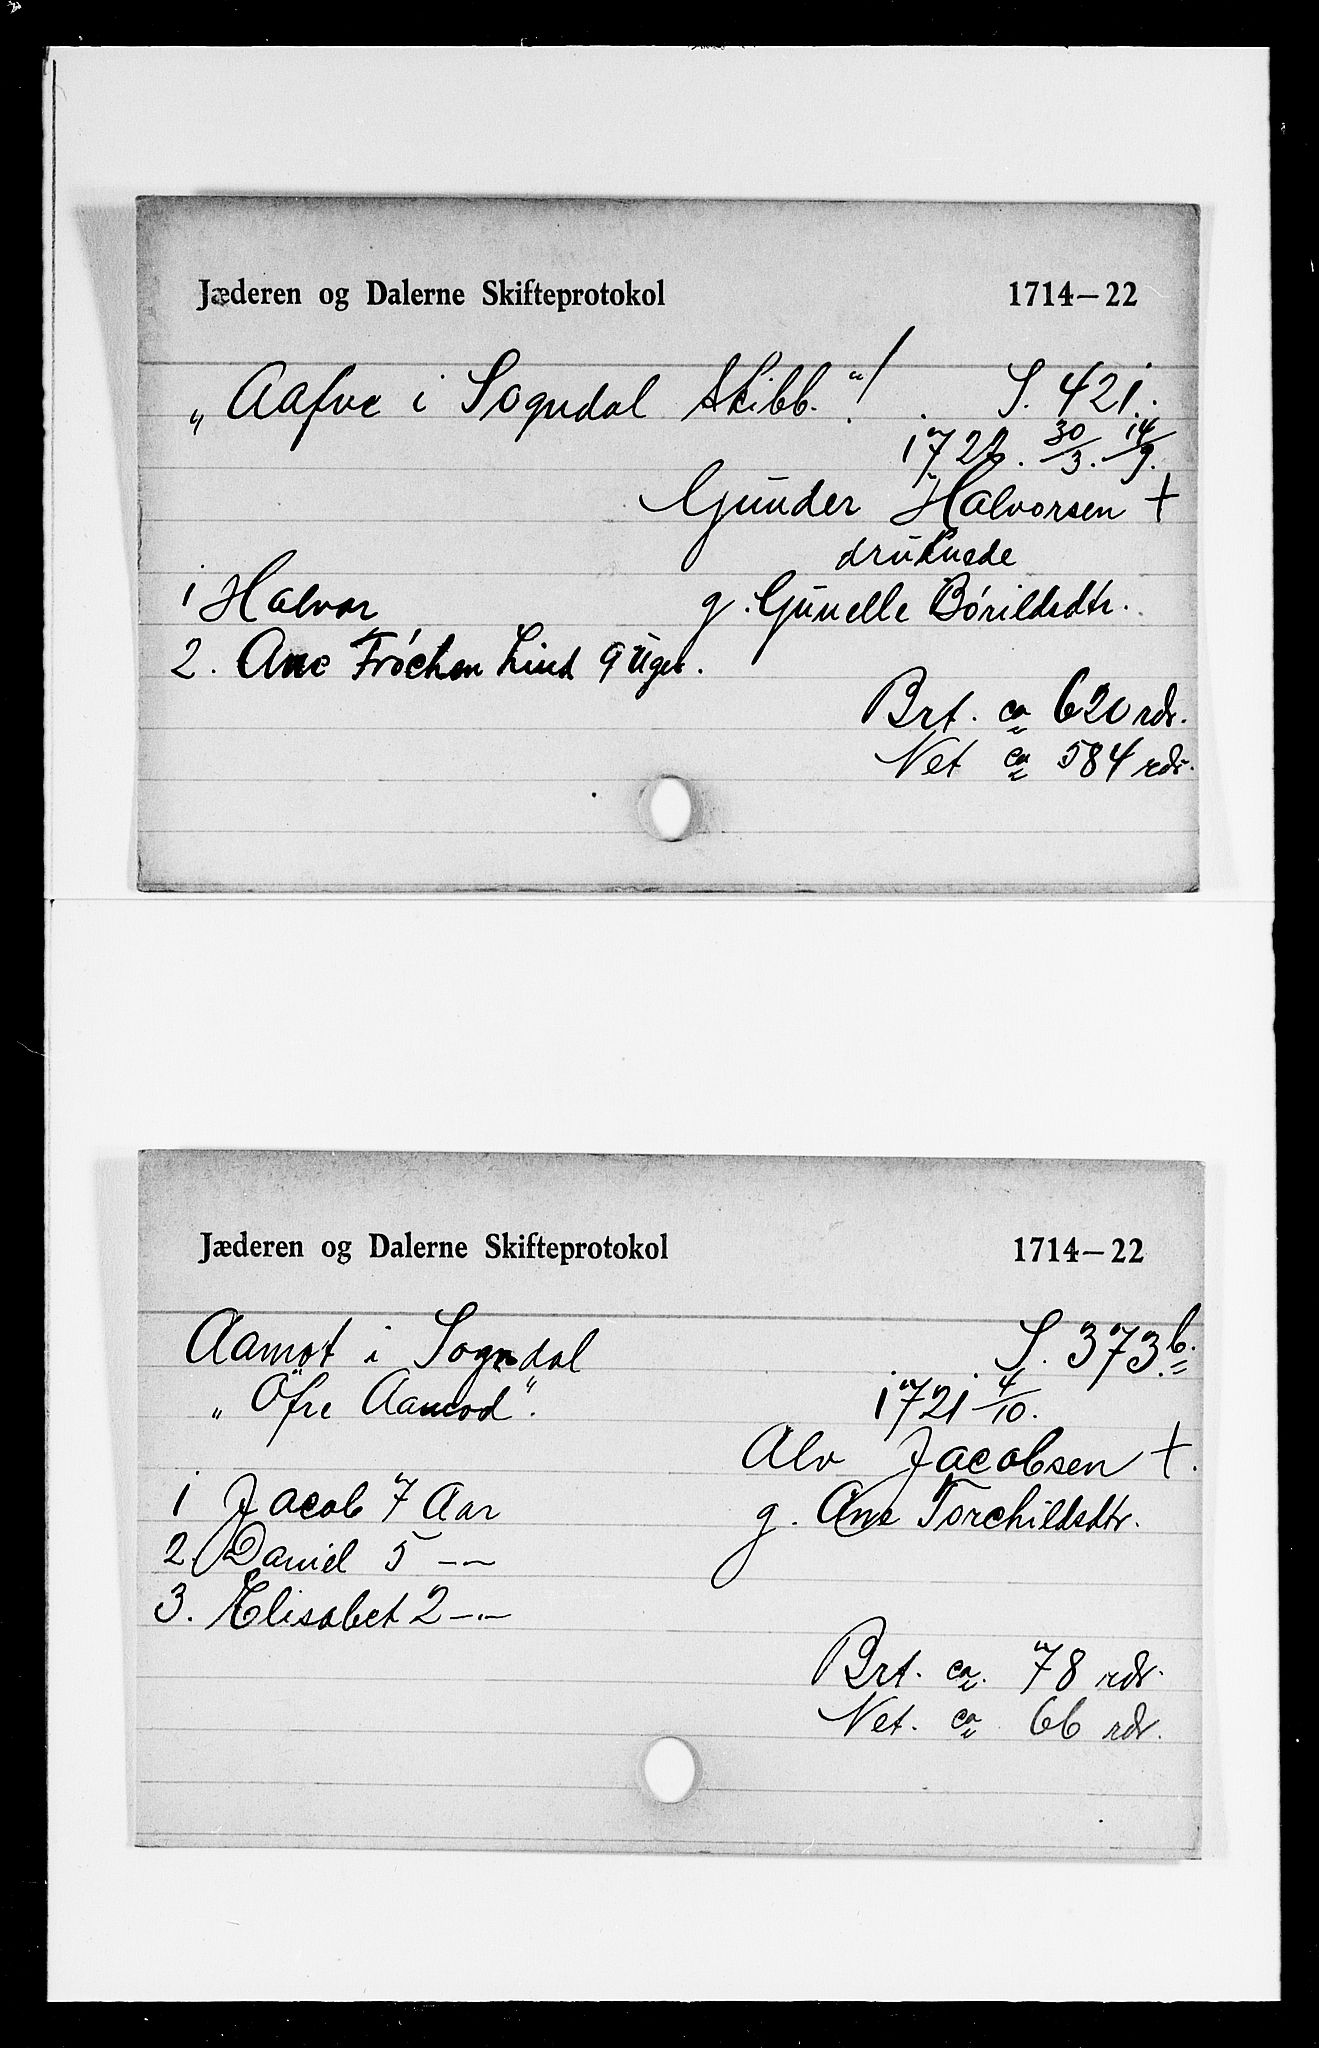 Jæderen og Dalerne Skifteprotokol 1714–22
„Aafve i Sogndal Skibb."! S. 421.
1722. 30/3. 14/9.
Gunder Halvorsen +
druknede
1 Halvor g. Gunelle Bórildsdtr.
2. Ane Fróchen Lind 9 Uger.
Brt. ca 620 rdr.
Net ca 584 rdr.
Jæderen og Dalerne Skifteprotokol 1714–22
Aamot i Sogndal S. 373 b.
„Öfre Aamod". 1721 4/10.
Alv Jacobsen +.
1 Jacob 7 Aar g. Ane Torchildsdtr.
2. Daniel 5 –·–
3. Elisabet 2 –·–
Brt. ca. 78 rdr.
Net. ca 66 rdr.